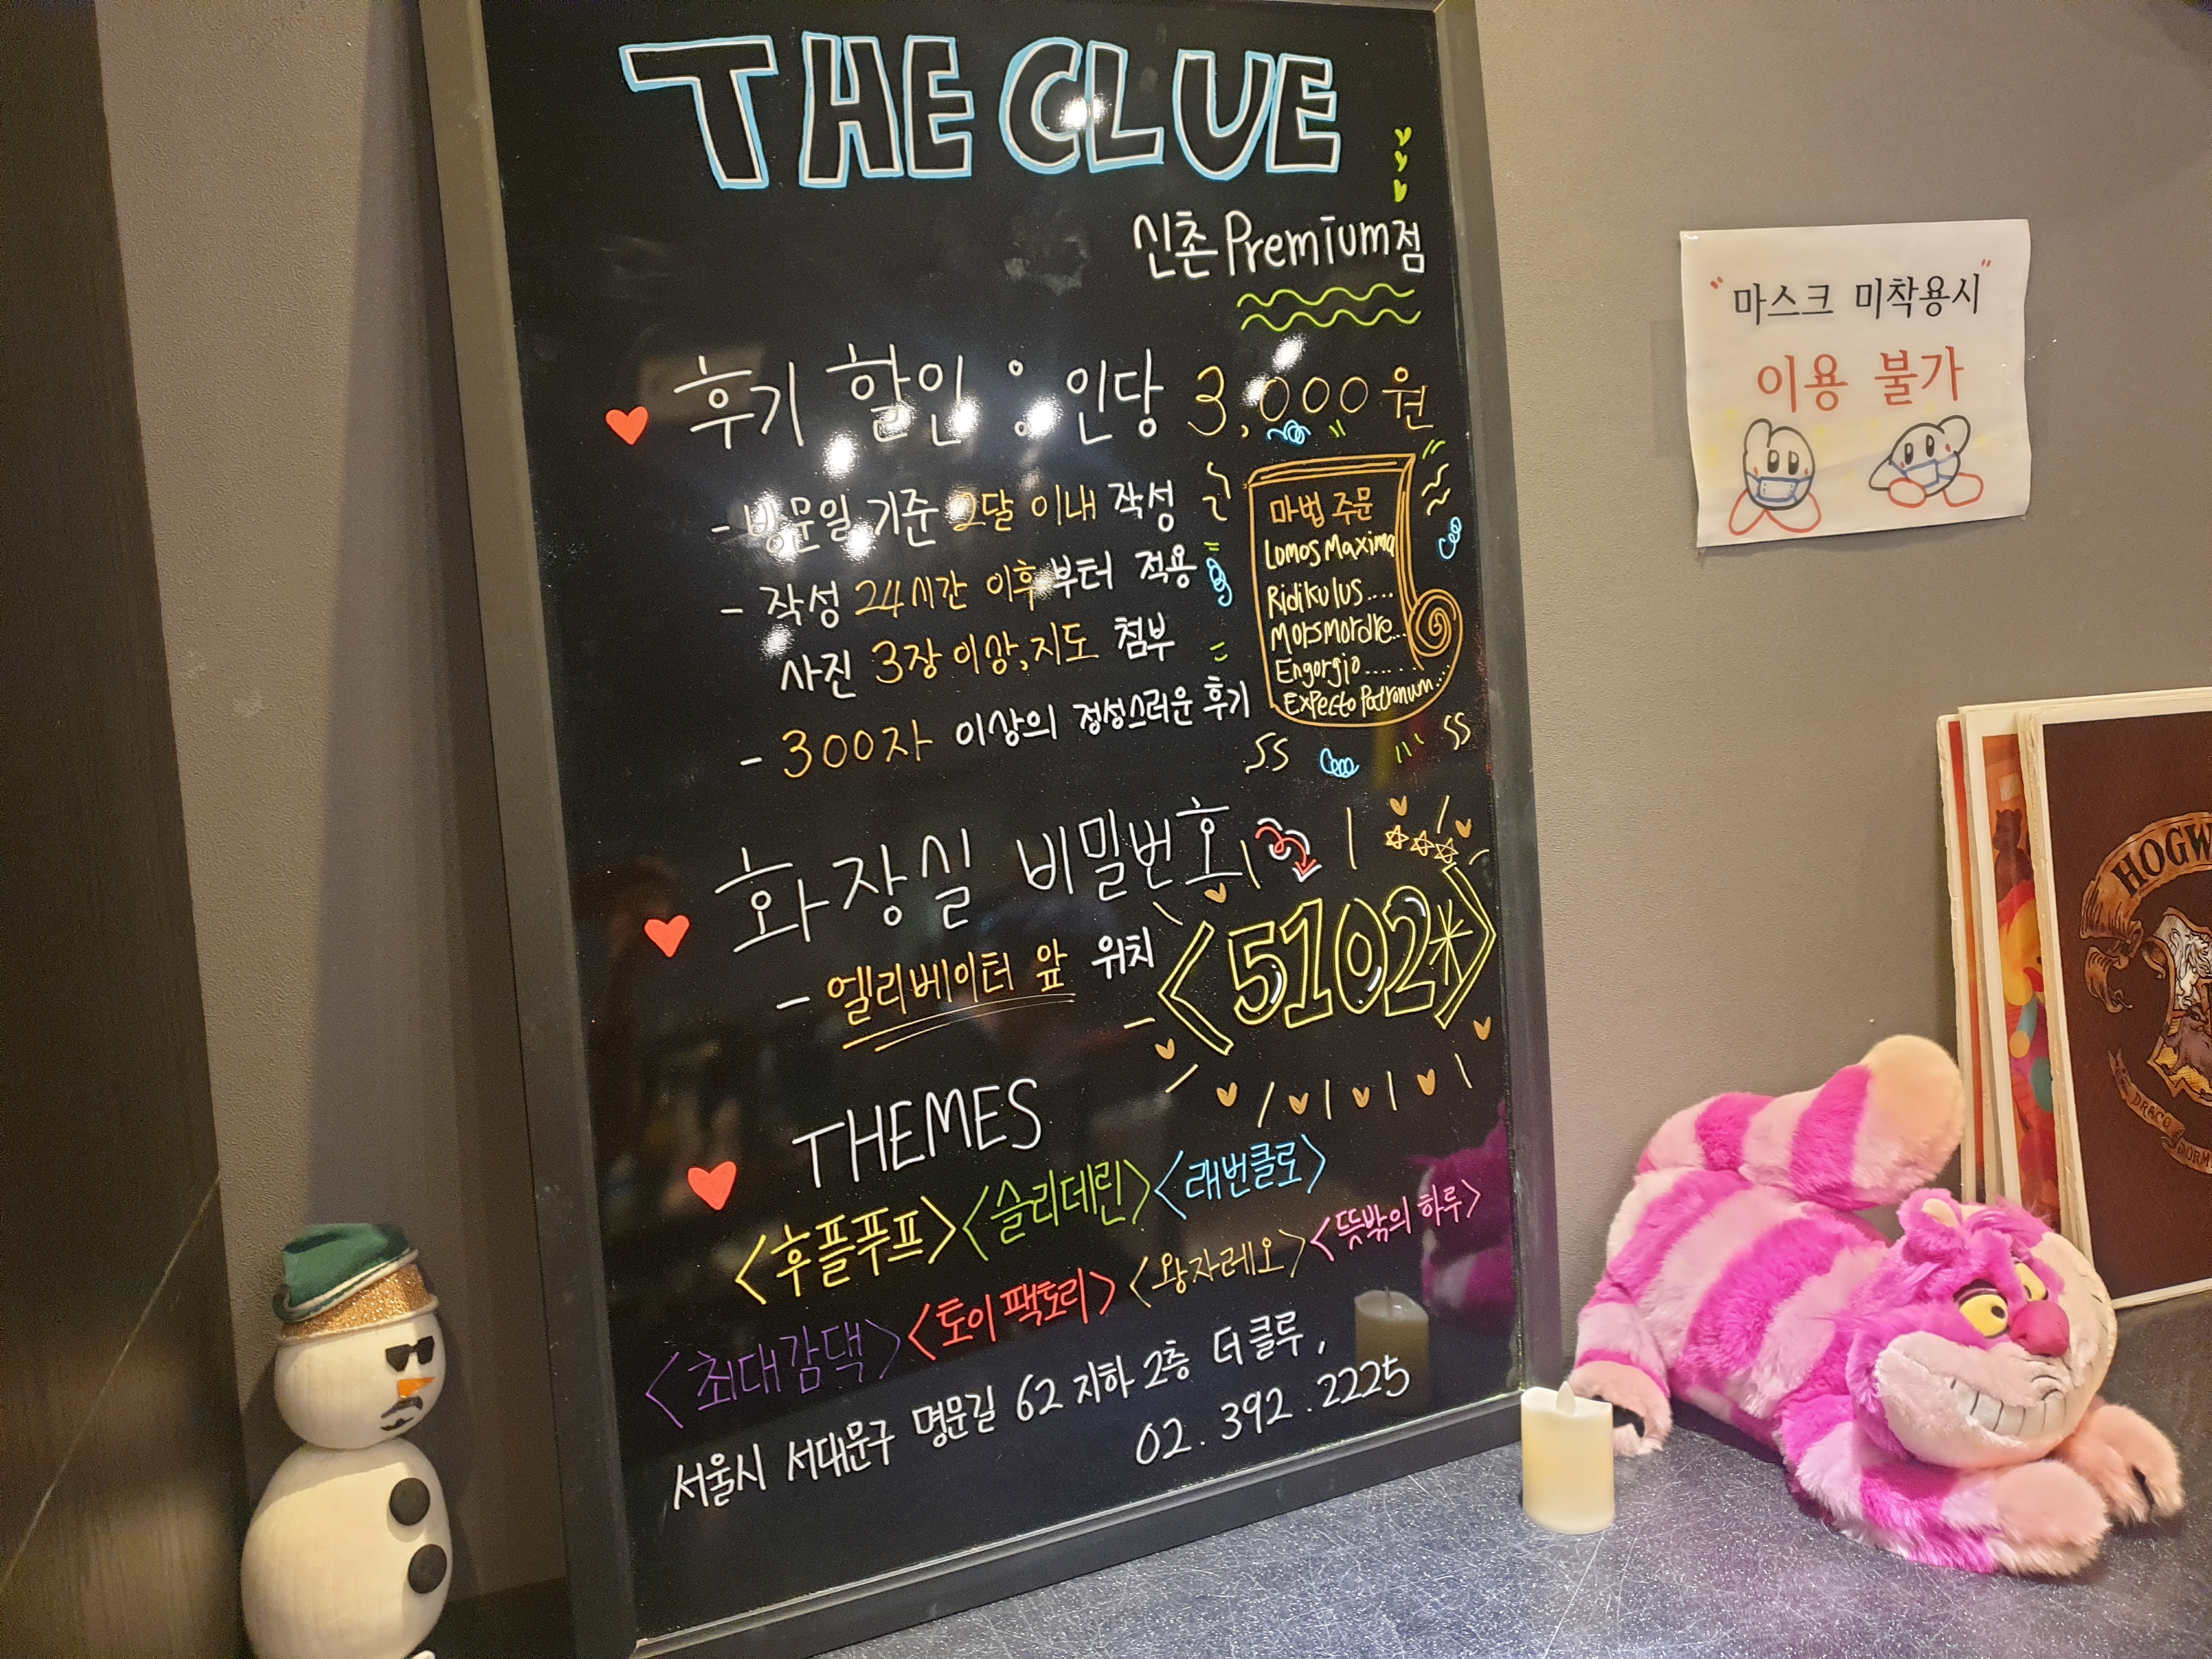 THE CLUE
신촌 Premium점
후기 할인 : 인당 3,000원
- 방문일 기준 2달 이내 작성
- 작성 24시간 이후부터 적용
사진 3장 이상, 지도 첨부
- 300자 이상의 정성스러운 후기
마법 주문
Lumos Maxima
Ridikulus....
Morsmordre...
Engorgio......
Expecto Patronum...
화장실 비밀번호
- 엘리베이터 앞 위치
- <5102*>
THEMES
<후플푸프> <슬리데린> <래번클로>
<최대감댁> <토이팩토리> <왕자레오> <뜻밖의 하루>
서울시 서대문구 명문길 62 지하 2층 더클루,
02. 392. 2225
"마스크 미착용시"
이용 불가
HOGW
DRACO
DORM